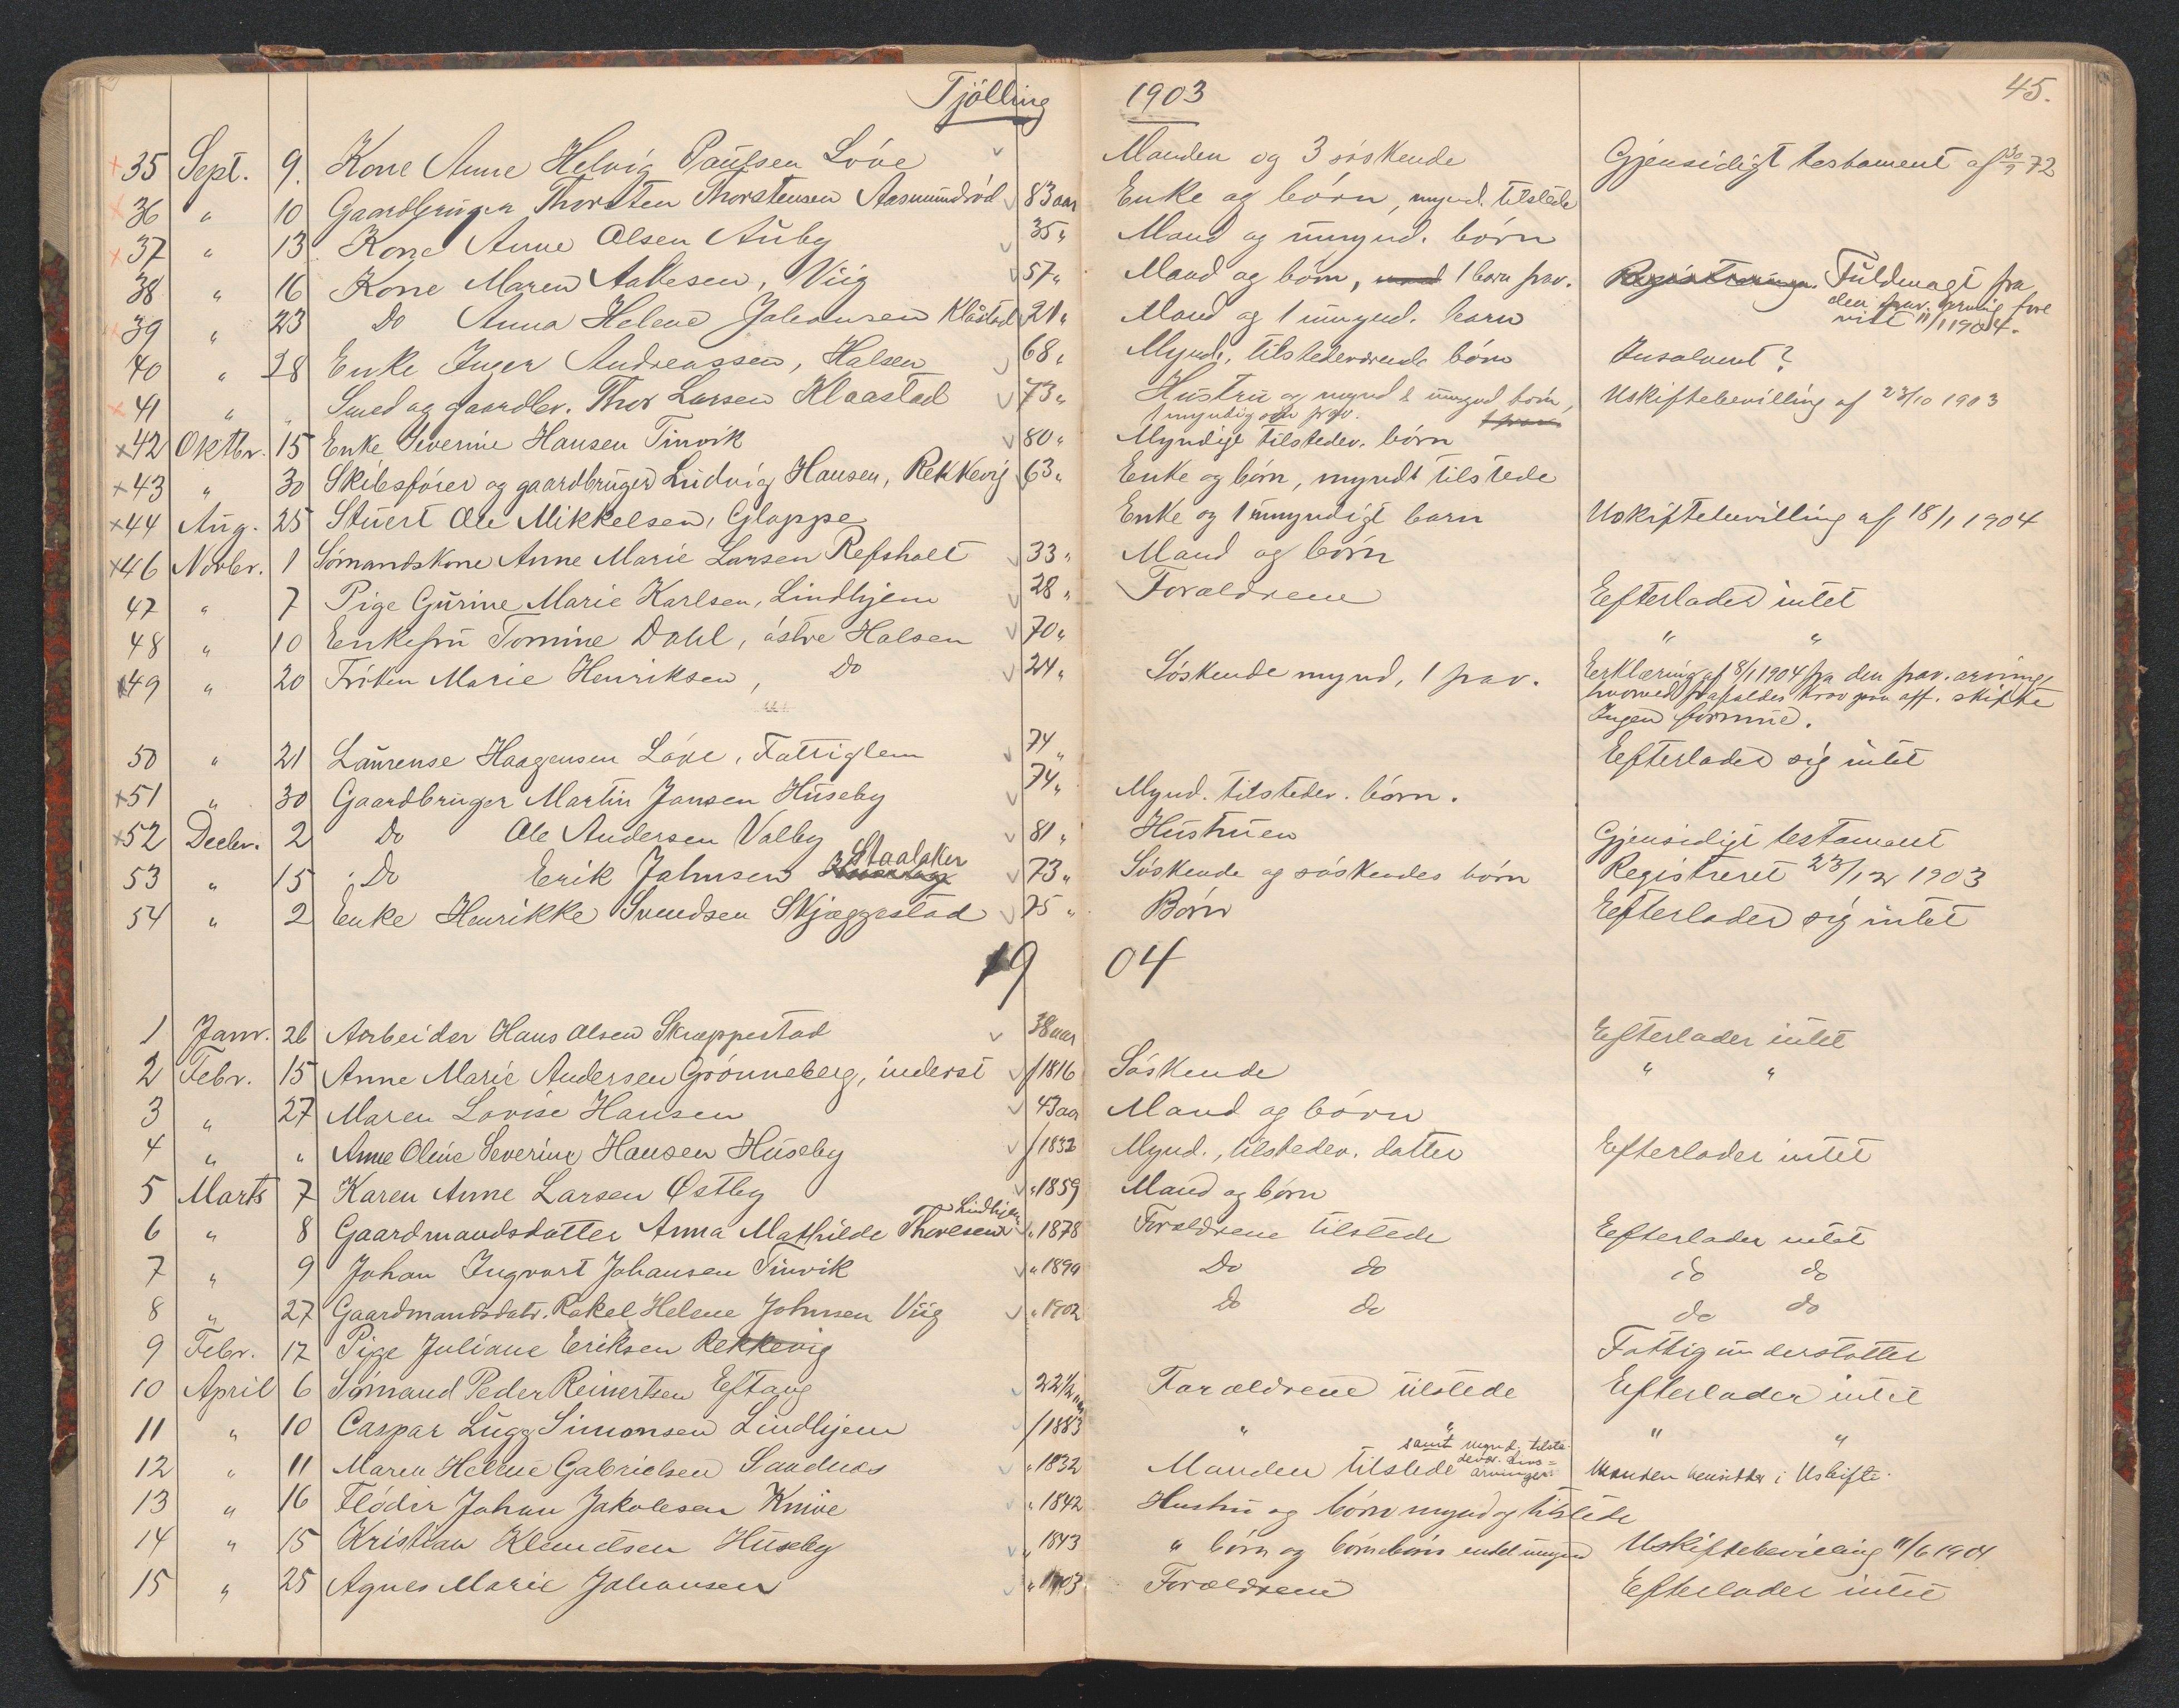 Tjölling 1903 45.
35 Sept. 9. Kone Anne Helvig Paulsen Löve Manden og 3 söskende Gjensidigt testament af 72
36 " 10 Gaardbruger Thorsten Thorstensen Aasmundröd 83 aar Enke og börn, mynd. tilstede
37 " 13 Kone Anne Olsen Auby 35 " Mand og umynd. börn
38 " 16 Kone Maren Aakesen, Viig 57 " Mand og börn, 1 barn frav. Registreringen. Fuldmagt fra
den frav. arving fore
39 " 23 Do Anna Helene Johansen Klåstad 21 " Mand og 1 umynd. barn vist 11/1 1904.
40 " 28 Enke Inger Andreassen, Halsen 68 " Mynd. tilstedeværende börn Insolvent?
41 " " Smed og gaardbr. Thor Larsen Klaastad 73 " Hustru og mynd & umynd börn, Uskiftebevilling af 23/10 1903
1 myndig frav.
42 Oktbr. 15 Enke Severine Hansen Tinvik 80 " Myndige tilstedev. börn
43 " 30 Skibsförer og gaardbruger Ludvig Hansen, Rekkevig 63 " Enke og börn, myndt tilstede
44 Aug. 25 Stuert Ole Mikkelsen, Gloppe Enke og 1 umyndigt barn Uskiftebevilling af 18/1 1904
46 Novbr. 1 Sömandskone Anne Marie Larsen Refsholt 33 " Mand og börn
47 " 7 Pige Gurine Marie Karlsen, Lindhjem 28 " Forældrene Efterlader intet
48 " 10 Enkefru Tomine Dahl, östre Halsen 70 " " "
49 " 20 Fröken Marie Henriksen, Do 24 " Söskende mynd, 1 frav. Erklæring af 8/1 1904 fra den frav. arving,
hvorved frafaldes krav paa off. skifte
Ingen formue.
50 " 21 Laurense Haagensen Löve, Fattiglem 74 " Efterlader sig intet
51 " 30 Gaardbruger Martin Jansen Huseby 74 " Mynd. tilstedev. börn.
52 Decbr. 2 Do Ole Andersen Valby 81 " Hustruen Gjensidigt testament
53 " 15 Do Erik Johnsen Staalaker 73 " Söskende og söskendes börn Registreret 23/12 1903
54 " 2 Enke Henrikke Svendsen Skjæggestad 75 " Börn Efterlader sig intet
1904
1 Janr. 26 Arbeider Hans Olsen Skreppestad 38 aar Efterlader intet
2 Febr. 15 Anne Marie Andersen Grönneberg, inderst f 1816 Söskende " "
3 " 27 Maren Lovise Hansen 43 aar Mand og börn
4 " " Anne Oline Severine Hansen Huseby f 1832 Mynd., tilstedev. datter Efterlader intet
5 Marts 7 Karen Anne Larsen Østby " 1859 Mand og börn
6 " 8 Gaardmandsdatter Anna Mathilde Thoresen Lindhjem " 1878 Forældrene tilstede Efterlader intet
7 " 9 Johan Ingvart Johansen Tinvik " 1899 Do do do do
8 " 27 Gaardmandsdatr. Rakel Helene Johnsen Viig " 1902 Do do do do
9 Febr. 17 Pige Juliane Eriksen Rekkevig Fattigunderstöttet
10 April 6 Sömand Peder Reinertsen Eftang 22 1/2 aar Forældrene tilstede Efterlader intet
11 " 10 Caspar Lugg Simonsen Lindhjem f 1883 " " " "
12 " 11 Maren Helene Gabrielsen Sandnæs " 1832 Manden tilstede samt mynd. tilstedevær. livsarvinger. Manden hensidder i Uskifte.
13 " 16 Flöder Johan Jakobsen Knive " 1842 Hustru og börn mynd og tilstede
14 " 15 Kristian Klemetsen Huseby " 1843 " börn og börnebörn umynd Uskiftebevilling 11/6 1904
15 " 25 Agnes Marie Johansen " 1903 Forældrene Efterlader intet